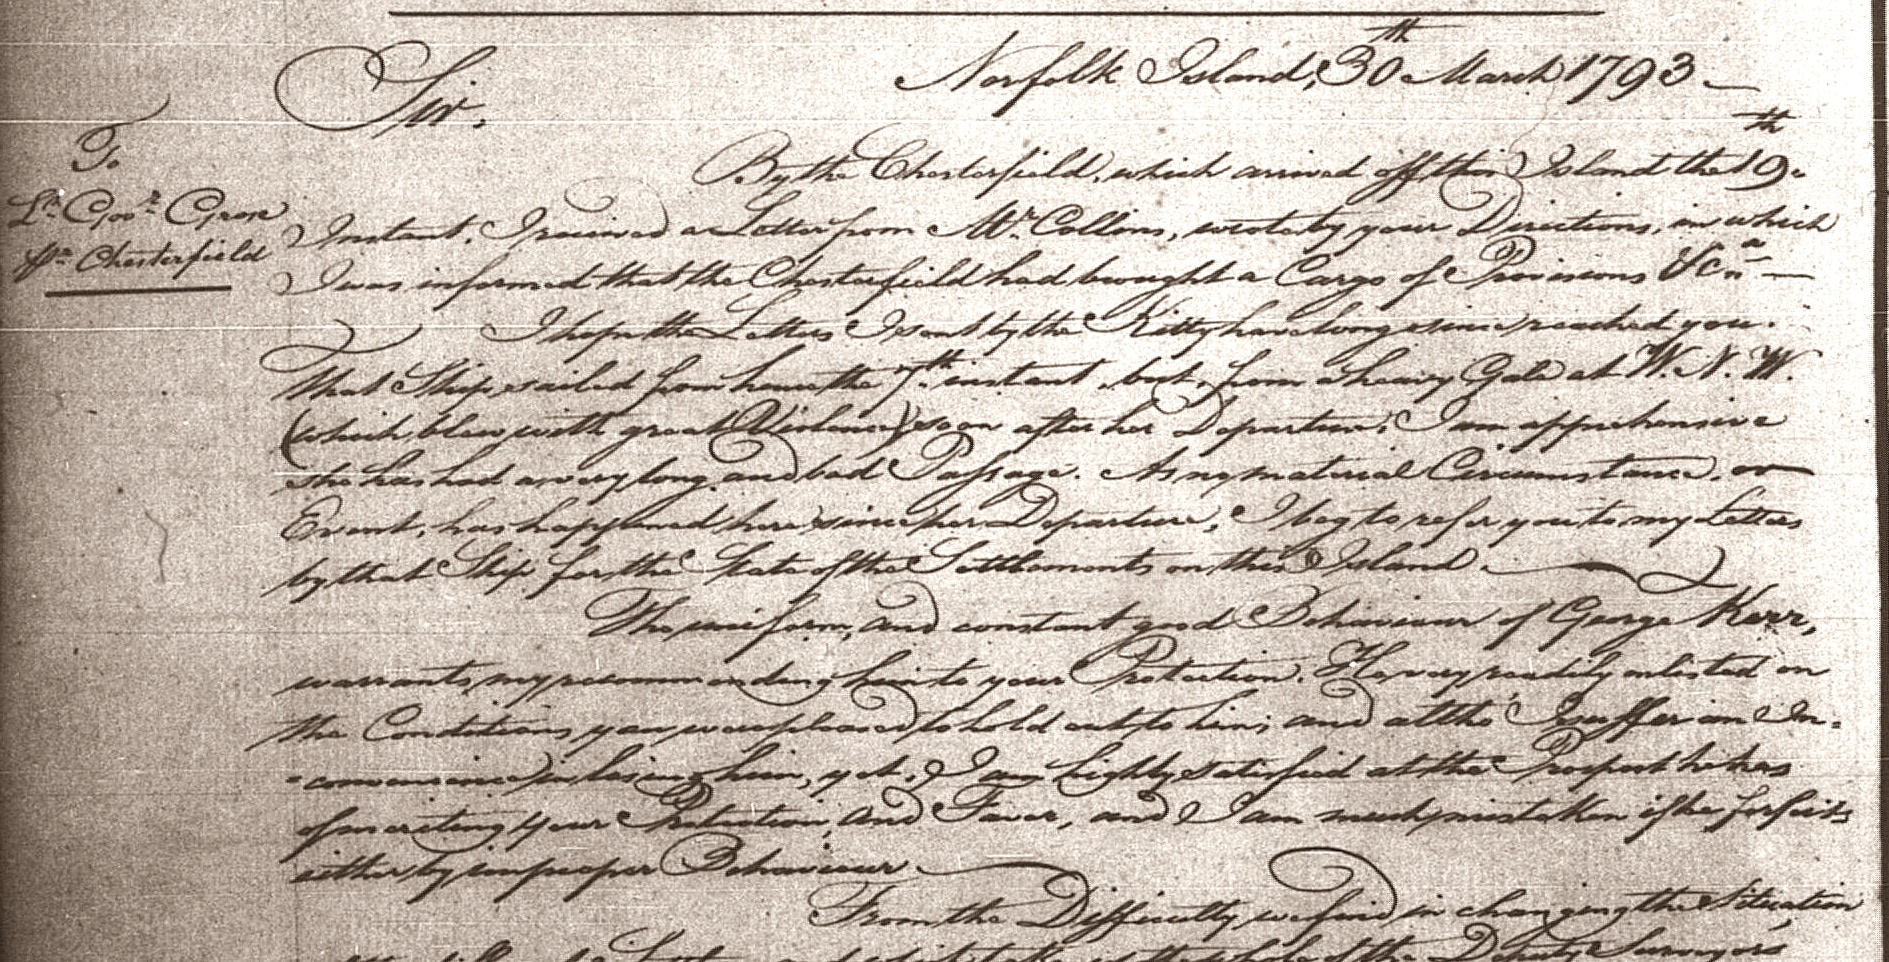 Norfolk Island, 30th March 1793 —
Sir,
To
Lt. Govr. Grose
pr. Chesterfield
By the Chesterfield, which arrived off this Island the 19th
Instant, I received a Letter from Mr. Collins, wrote by your Directions, in which
I was informed that the Chesterfield had brought a Cargo of Provisions &ca —
I hope the Letters I sent by the Kitty have long since reached you.
That Ship sailed from hence the 7th instant but, from a heavy Gale at W. N. W.
(which blew with great Violence) soon after her Departure, I am apprehensive
she has had a very long, and bad Passage. As no material Circumstance, or
Event, has happened here since her Departure, I beg to refer you to my Letters
by that Ship for the State of the Settlements on this Island. —
The uniform, and constant good Behaviour of George Kerr,
warrants my recommending him to your Protection. He very readily enlisted on
the Conditions you were pleased to hold out to him; and altho' I suffer an In=
=convenience in losing him, yet, I am highly satisfied at the Prospect he has
of meriting your Protection, and Favor, and I am much mistaken if he forfeits
either by improper Behaviour —
From the Difficulty we find in changing the Situation
of the Deputy Surveyor's